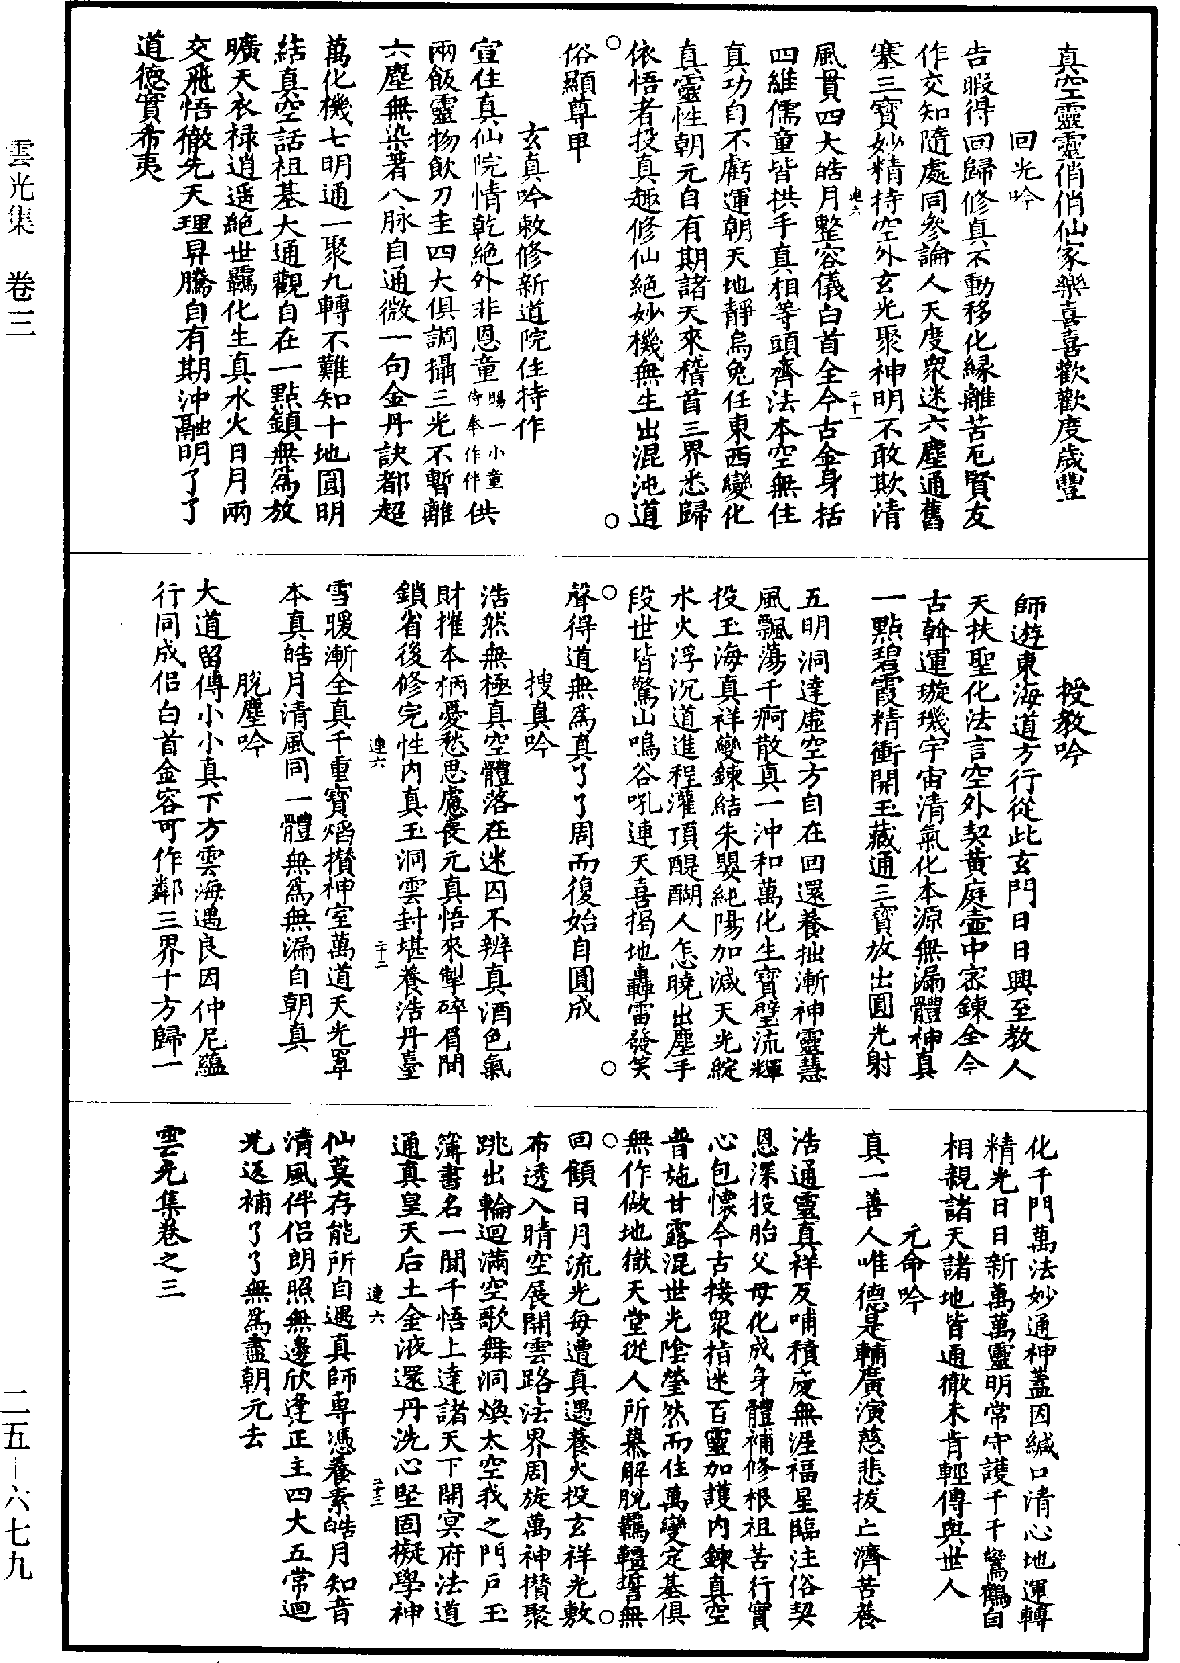 真空靈靈俏俏仙家樂喜喜歡歡度歲豐
回光吟
告暇得回歸修真不動移化緣離苦厄賢友
作交知隨處同參論人天度衆迷六塵通舊
塞三寶妙精持空外玄光聚神明不敢欺清
連六
二十一
風貫四大皓月整容儀白首全今古金身括
四維儒童皆拱手真相等頭齊法本空無住
真功自不虧運朝天地靜烏兔任東西變化
真靈性朝元自有期諸天來稽首三界悉歸
依悟者投真趣修仙絶妙機無生出混沌道
俗顯尊甲
玄真吟敕修新道院住持作
宣住真仙院情乾絶外非恩童賜一小童侍奉作伴供
兩飯靈物飲刀圭四大俱調攝三光不暫離
六塵無染著八脉自通微一句金丹訣都超
萬化機七明通一聚九轉不難知十地圓明
結真空話祖基大通觀自在一點鎮無爲放
曠天衣禄逍遥絶世羈化生真水火日月兩
交飛悟徹先天理昇騰自有期沖融明了了
道德實希夷
授教吟
師遊東海道方行從此玄門日日興至教人
天扶聖化法言空外契黄庭壺中密鍊全今
古斡運璇璣宇宙清氣化本源無漏體神真
一點碧霞精衝開玉藏通三寶放出圓光射
五明洞達虛空方自在回還養拙漸神靈慧
風飄蕩千痾散真一沖和萬化生寶璧流輝
投玉海真祥變鍊結朱嬰純陽加減天光綻
水火浮沉道進程灌頂醍醐人怎曉出塵手
段世皆驚山鳴谷吼連天喜揭地轟雷發笑
聲得道無爲真了了周而復始自圓成
搜真吟
浩然無極真空體落在迷囚不辨真酒色氣
財摧本柄憂愁思慮喪元真悟來掣碎眉間
鎖省後修完性内真玉洞雲封堪養浩丹臺
連六
二十二
雪暖漸全真千重寶焰攢神室萬道天光罩
本真皓月清風同一體無爲無漏自朝真
脱塵吟
大道留傳小小真下方雲海遇良因仲尼蘊
行同成侣白首金容可作鄰三界十方歸一
化千門萬法妙通神蓋因緘口清心地運轉
精光日日新萬萬靈明常守護千千鸞鶴自
相親諸天諸地皆通徹未肯輕傳與世人
元命吟
真一善人唯德是輔廣演慈悲拔亡濟苦養
浩通靈真祥反哺積慶無涯福星臨注俗契
恩深投胎父母化成身體補修根祖苦行實
心包懷今古接衆指迷百靈加護内鍊真空
普施甘露混世光陰瑩然而住萬變定基俱
無作做地獄天堂從人所慕解脱羈韁誓無
回顧日月流光每遭真遇養火投玄祥光敷
布透入晴空展開雲路法界周旋萬神攢聚
跳出輪迴滿空歌舞洞煥太空我之門户玉
簿書名一聞千悟上達諸天下開冥府法道
通真皇天后土金液還丹洗心堅固擬學神
連六
二十三
仙莫存能所自遇真師專憑養素皓月知音
清風伴侣朗照無邊欣逢正主四大五常迴
光返補了了無爲盡朝元去
雲光集卷之三
雲光集　卷三
二五－六七九